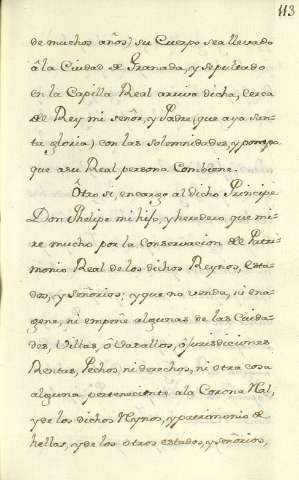 113
de muchos años) su Cuerpo sea llevado
â la Ciudad de Granada, y sepultado
en la Capilla Real arriva dicha, cerca
del Rey mi señor, y Padre (que aya san-
ta gloria) con las solemnidades, y pompa
que a su Real persona Combiene.
Otro si, encargo al dicho Principe
Don Phelipe mi hijo, y heredero que mi-
re mucho por la Conservacion del Patri-
monio Real de los dichos Reynos, Esta-
dos, y señorios; y que no venda, ni ena-
gene, ni empeñe algunas de las Ciuda-
des, Villas, ô Vasallos, ô jurisdiciones
Rentas, Pechos, ni derechos, ni otra cosa
alguna perteneciente a la Corona Ral,
y de los dichos Rynos, y patrimonio de
hellos, y de los otros estados, y señorios,